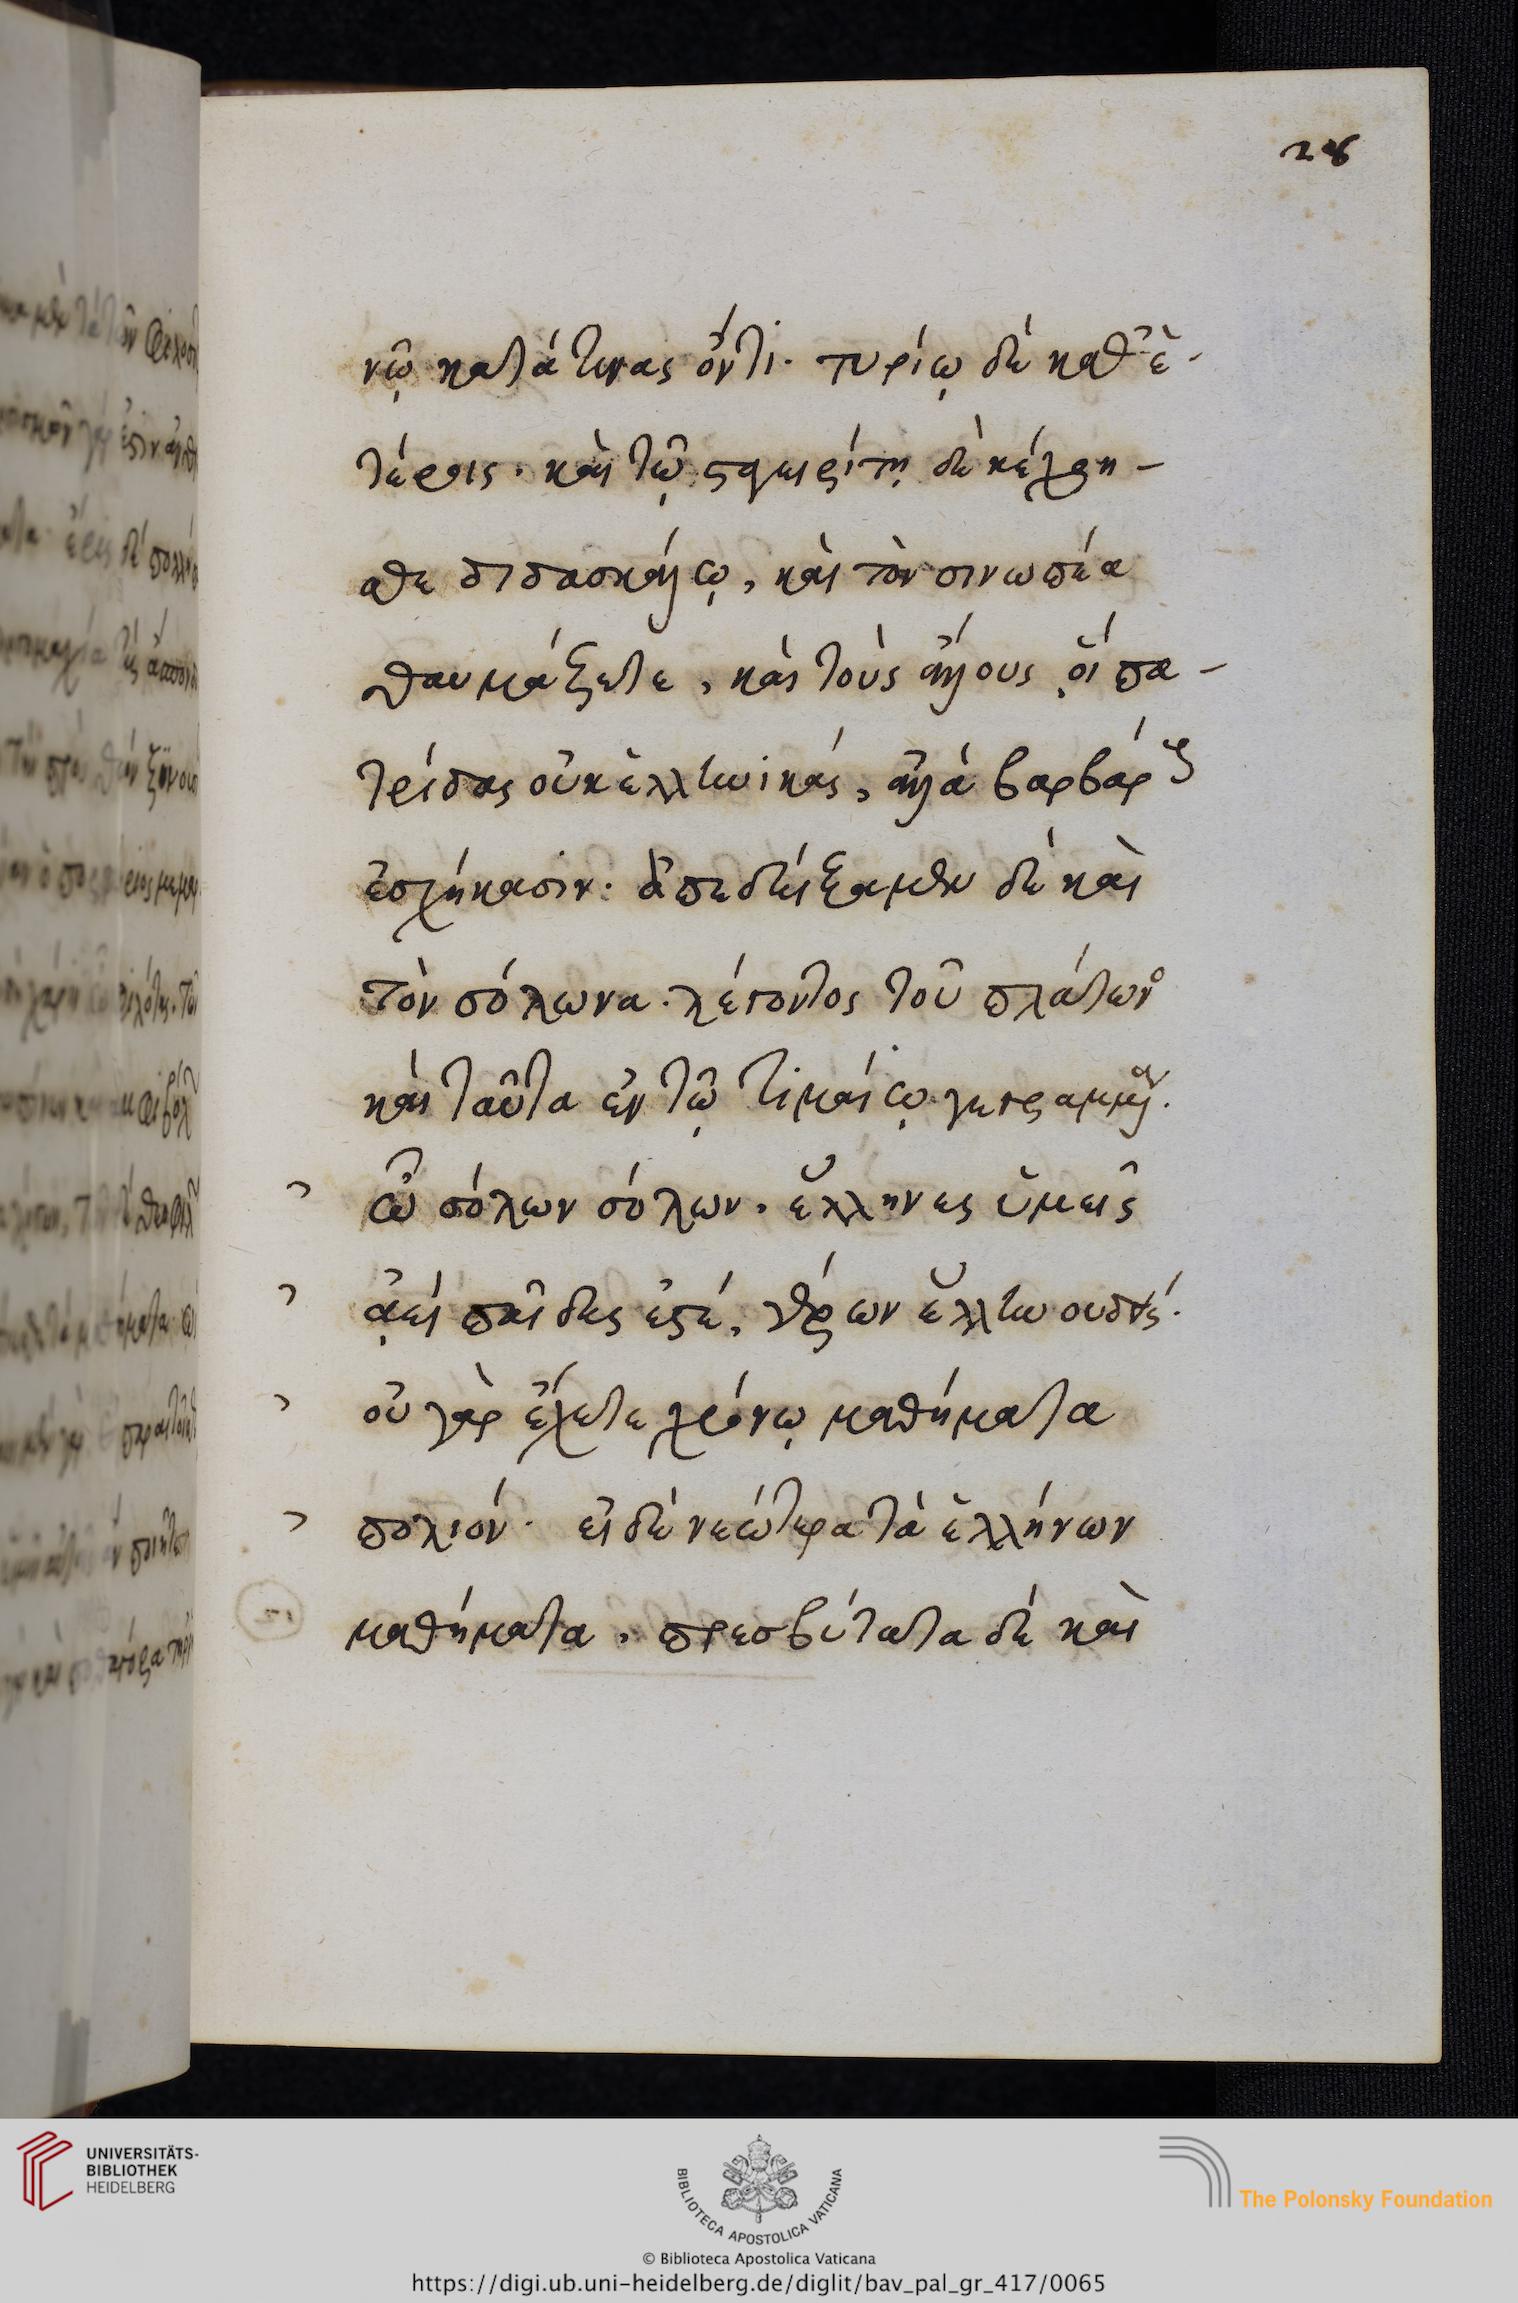 28
νῷ κατά τινας ὄντι. τυρίῳ δὲ καθ' ἑ-
τέρους. καὶ τῷ σταγειρίτῃ δὲ κέχρη-
σθε διδασκάλῳ, καὶ τὸν σινωπέα
θαυμάζετε, καὶ τοὺς ἄλλους οἳ πα-
τρίδας οὐκ ἑλληνικάς, ἀλλὰ βαρβάρους
ἐσχήκασιν. ἀπεδείξαμεν δὲ καὶ
τὸν σόλωνα. λέγοντος τοῦ πλάτωνος
καὶ ταῦτα ἐν τῷ τιμαίῳ γεγραμμένα.
ὦ σόλων σόλων. ἕλληνες ὑμεῖς
ἀεὶ παῖδες ἐστέ, γέρων ἕλλην οὐδείς.
οὐ γὰρ ἔχετε χρόνῳ μαθήματα
πολιόν. εἰ δὲ νεώτερα τὰ ἑλλήνων
μαθήματα, πρεσβύτατα δὲ καὶ
UNIVERSITÄTS-
BIBLIOTHEK
HEIDELBERG
BIBLIOTECA APOSTOLICA VATICANA
The Polonsky Foundation
© Biblioteca Apostolica Vaticana
https://digi.ub.uni-heidelberg.de/diglit/bav_pal_gr_417/0065